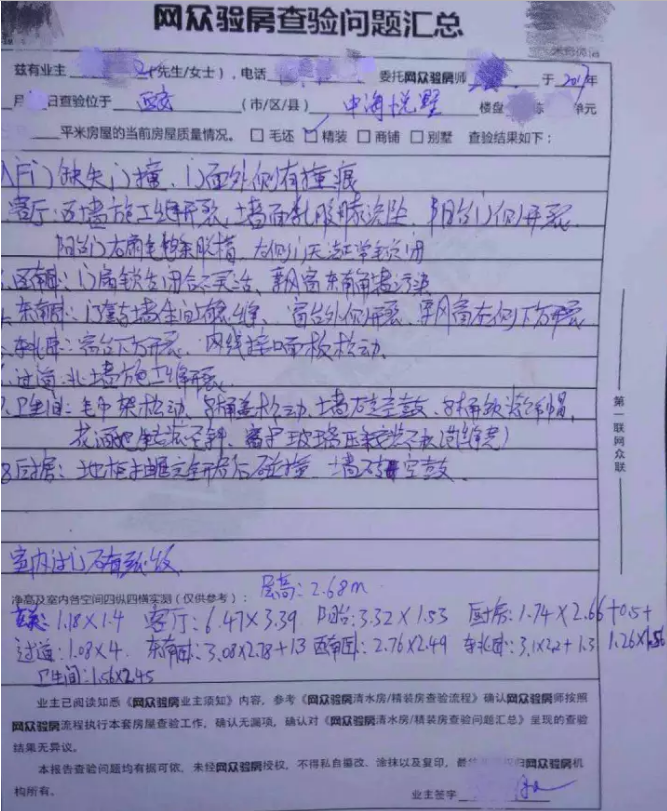 网众验房查验问题汇总
兹有业主 先生/女士），电话 委托网众验房师 于2017年
月 日查验位于 西安 （市/区/县） 中海悦墅 楼盘 栋 单元
平米房屋的当前房屋质量情况。 □毛坯 ☑精装 □商铺 □别墅 查验结果如下：
入户门缺失门撞、门面外侧有撞痕
客厅：西墙施工缝开裂，墙面乳胶漆流坠、阳台门侧开裂
阳台门右扇毛条脱槽、左侧门无法正常锁闭
西南卧：门扇锁右闭合不灵活、飘窗东南角墙污染
东南卧：门套与墙体间有裂缝、窗台外侧开裂、飘窗左侧下方开裂
东北卧：窗台下方开裂、内线接口面板松动。
过道：北墙施工缝开裂
7.卫生间：毛巾架松动、马桶盖松动、墙砖空鼓、马桶缺装饰帽、
花洒 窗户玻璃压
8.厨房：地柜抽屉完全开启后碰撞、墙砖空鼓。
室内过门石有
层高：2.68m
净高及室内各空间四纵四横实测（仅供参考）：
1.18×1.4 客厅：6.47×3.39 阳台：3.32×1.53 厨房：1.74×2.66+0.5+
过道：1.08×4. 东南卧：3.08×2.78+1.3 西南卧：2.76×2.49 东北卧：3.1×2.2+1.3 1.26×1.56
卫生间：1.56×2.45
业主已阅读知悉《网众验房业主须知》内容，参考《网众验房清水房/精装房查验流程》确认网众验房师按照
网众验房流程执行本套房屋查验工作，确认无漏项，确认对《网众验房清水房/精装房查验问题汇总》呈现的查验
结果无异议。
本报告查验问题均有据可依，未经网众验房授权，不得私自篡改、涂抹以及复印，最终 归网众验房机
构所有。
业主签字
第一联网众联